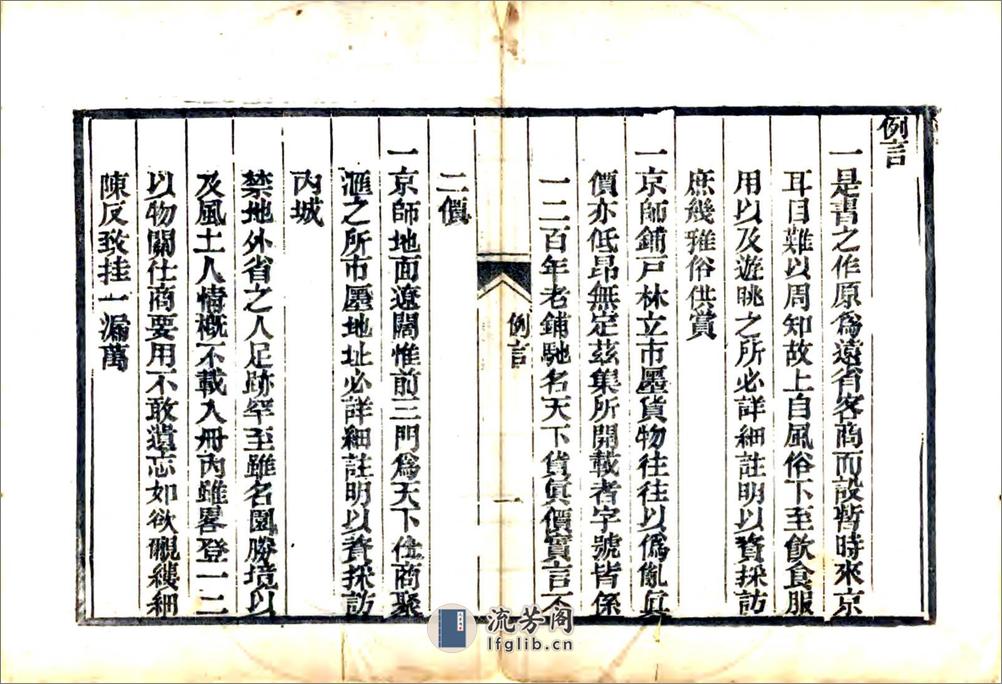 例言
一是書之作原爲遠省客商而設暫時來京
耳目難以周知故上自風俗下至飲食服
用以及遊眺之所必詳細註明以資採訪
庶幾雅俗供賞
一京師鋪戸林立市廛貨物往往以僞亂眞
價亦低昂無定茲集所開載者字號皆係
一二百年老鋪馳名天下貨眞價實言不
例言
一
二價
一京師地面遼闊惟前三門爲天下仕商聚
滙之所市廛地址必詳細註明以資採訪
內城
禁地外省之人足跡罕至雖名園勝境以
及風土人情概不載入册內雖畧登一二
以物關仕商要用不敢遺忘如欲覼縷細
陳反致挂一漏萬
流芳阁
lfglib.cn